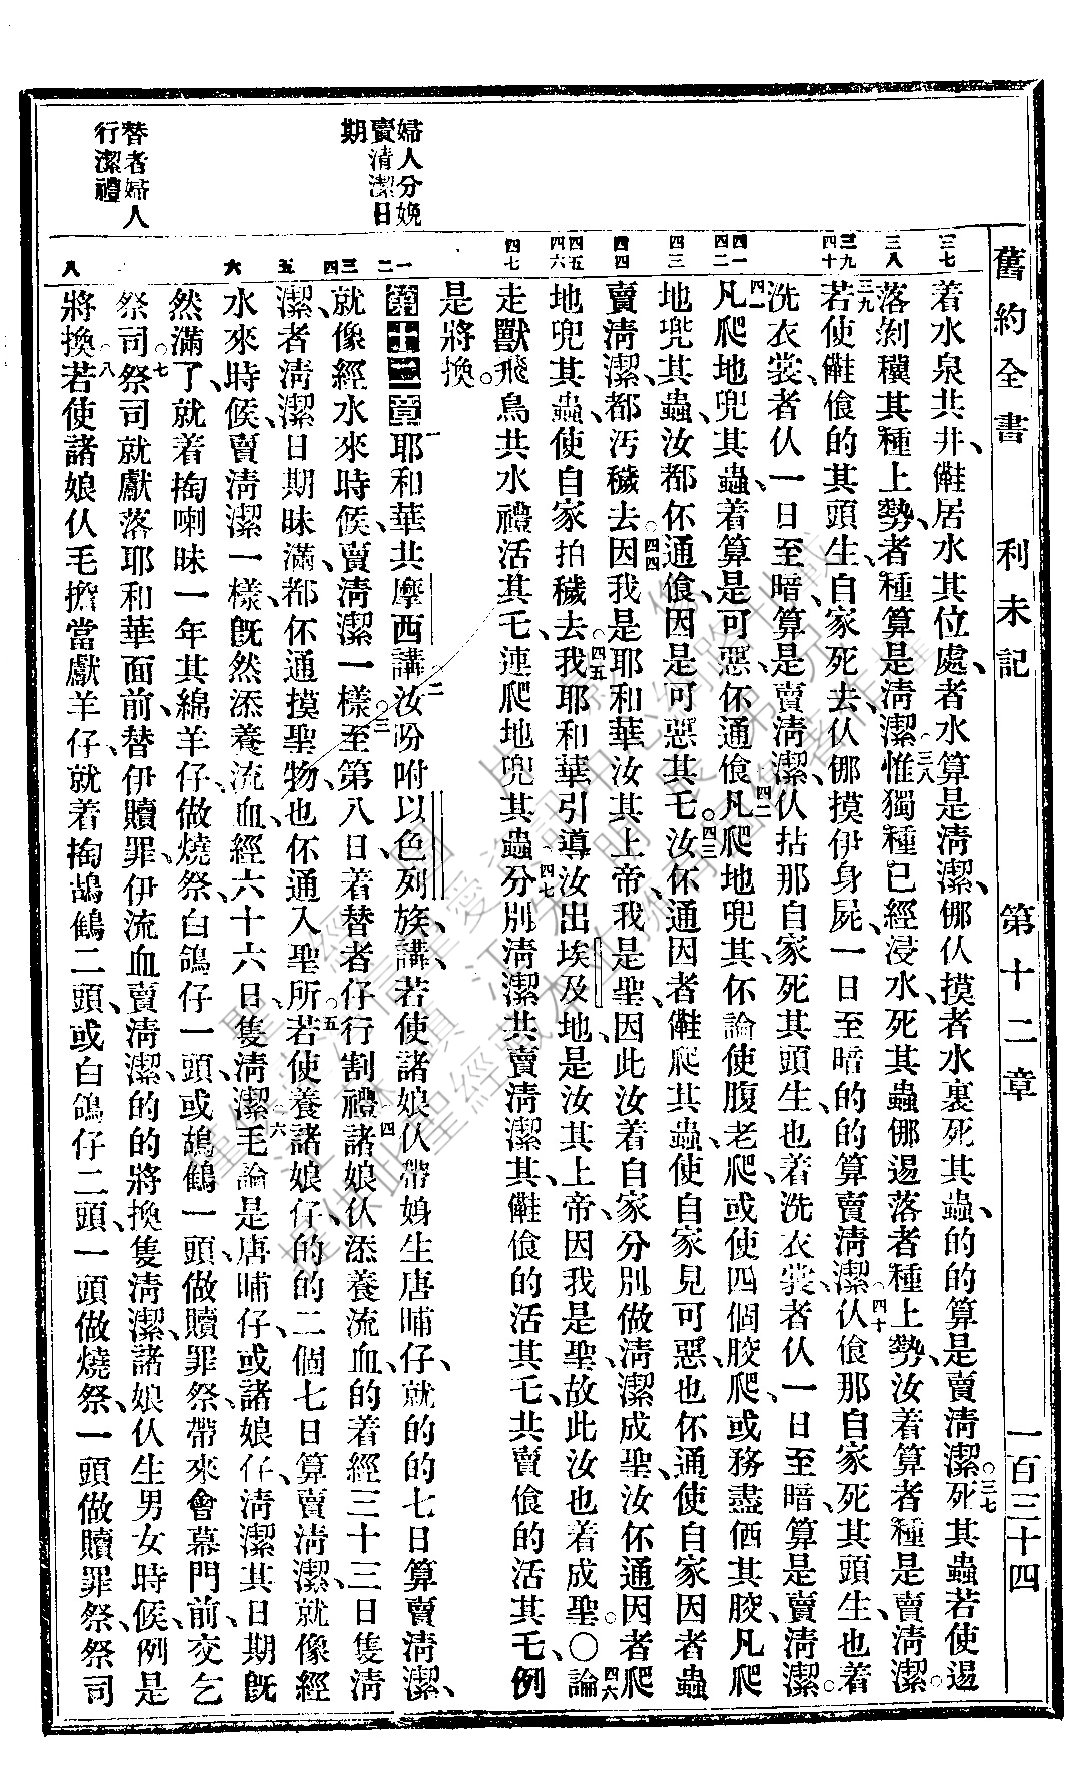 舊約全書 利未記 第十二章 一百三十四
三七
三八
三九
四十
四一
四二
四三
四四
四五
四六
四七
一
二
三
四
五
六
八
婦人分娩
賣清潔日
期
替者婦人
行潔禮
着水泉共井、儺居水其位處、者水算是清潔、𠆧仈摸者水裏死其蟲、的的算是賣清潔。○三七死其蟲若使逿
落剝穬其種上勢、者種算是清潔。三八惟獨種已經浸水、死其蟲𠆧逿落者種上勢、汝着算者種是賣清潔。
三九若使儺飡的其頭生、自家死去、仈𠆧摸伊身屍、一日至暗的的算賣清潔。四十仈飡那自家死其頭生、也着
洗衣裳、者仈一日至暗、算是賣清潔、仈拈那自家死其頭生、也着洗衣裳、者仈一日至暗、算是賣清潔。
四一凡爬地兜其蟲、着算是可惡、伓通飡。四二凡爬地兜其、伓論使腹老爬、或使四個骹爬、或務盡価其骹、凡爬
地兜其蟲、汝都伓通飡、因是可惡其乇。四三汝伓通因者儺爬其蟲、使自家見可惡、也伓通使自家因者蟲
賣清潔、都汚穢去。四四因我是耶和華汝其上帝、我是聖、因此汝着自家分別、做清潔成聖、汝伓通因者爬
地兜其蟲、使自家拍穢去。四五我耶和華引導汝出埃及地、是汝其上帝、因我是聖、故此汝也着成聖。○四六論
走獸飛鳥共水禮活其乇、連爬地兜其蟲、四七分別清潔共賣清潔其、儺飡的活其乇、共賣飡的活其乇、例
是將換。
第十二章一耶和華共摩西講、○二汝吩咐以色列族、講、若使諸娘仈帶娒生唐晡仔、就的的七日算賣清潔、
就像經水來時候、賣清潔一樣。○三至第八日、着替者仔行割禮。四諸娘仈添養流血、的着經三十三日隻清
潔、者清潔日期昧滿、都伓通摸聖物、也伓通入聖所。五若使養諸娘仔、的的二個七日算賣清潔、就像經
水來時候、賣清潔一樣、旣然添養流血、經六十六日隻清潔。六毛論是唐晡仔、或諸娘仔、清潔其日期旣
然滿了、就着掏喇昧一年其綿羊仔、做燒祭、白鴿仔一頭、或鴣鶴一頭做贖罪祭、帶來會幕門前、交乞
祭司。○七祭司就獻落耶和華面前、替伊贖罪、伊流血賣清潔、的的將換隻清潔、諸娘仈生男女時候、例是
將換。○八若使諸娘仈毛擔當獻羊仔、就着掏鴣鶴二頭、或白鴿仔二頭、一頭做燒祭、一頭做贖罪祭、祭司